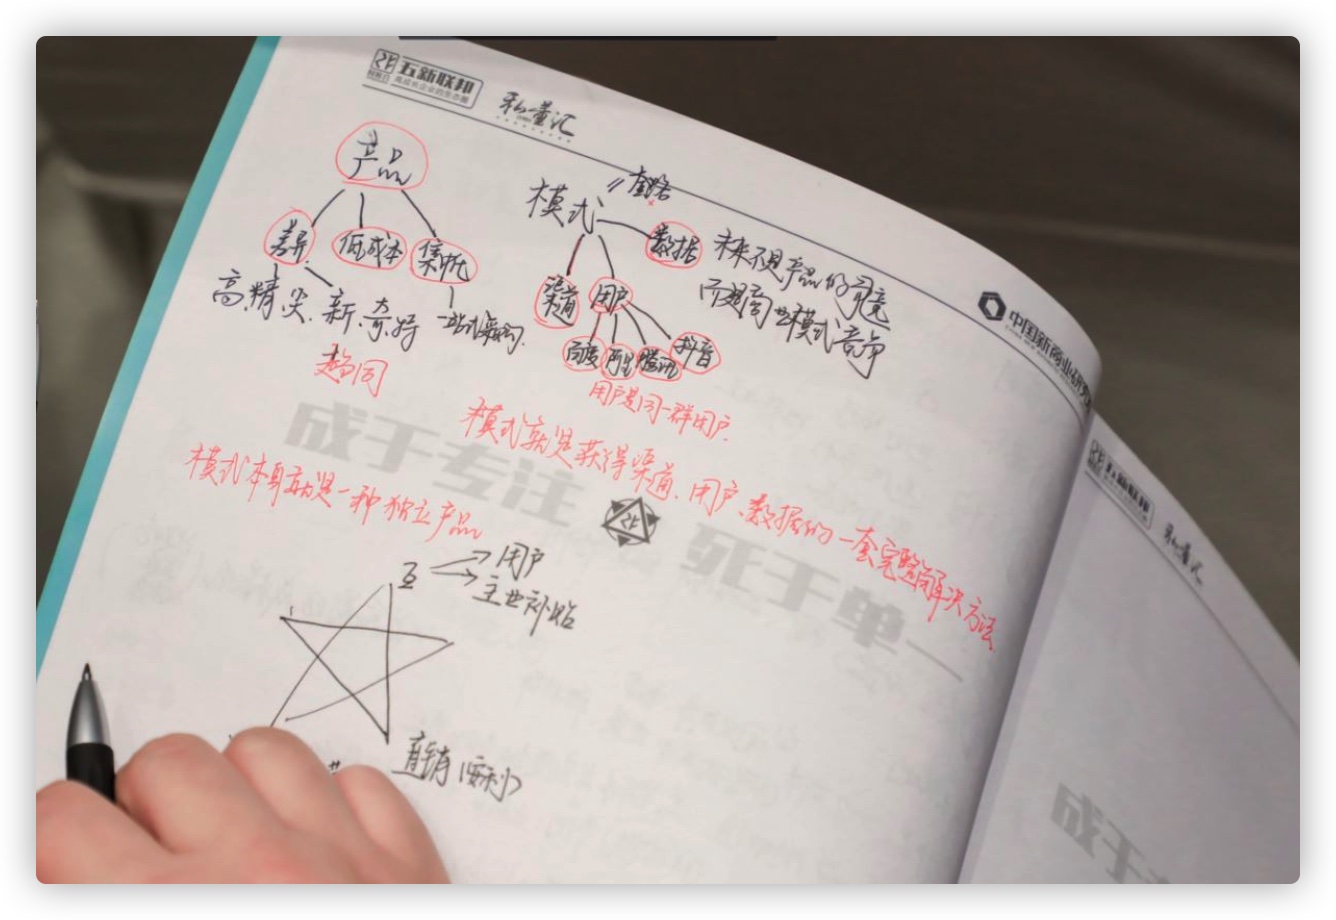 五新联邦
私董汇
产品
模式 // 套路
差异 低成本 集中
数据
未来不是产品的竞
而是商业模式竞争
高.精.尖.新.奇.特
一站式采购
渠道 用户
百度 阿里 腾讯 抖音
趋同
用户是同一群用户
模式就是获得渠道、用户、数据的一套完整解决方法
模式本身就是一种独立产品
成于专注 死于单一
互 → 用户
→ 主业补贴
直销(安利)
中国新商业研究
五新联邦
私董汇
成于